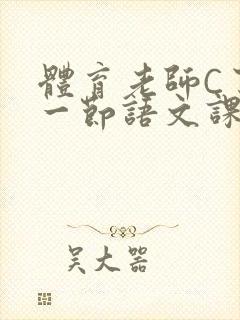 體育老師C
一節語文課
吴大器